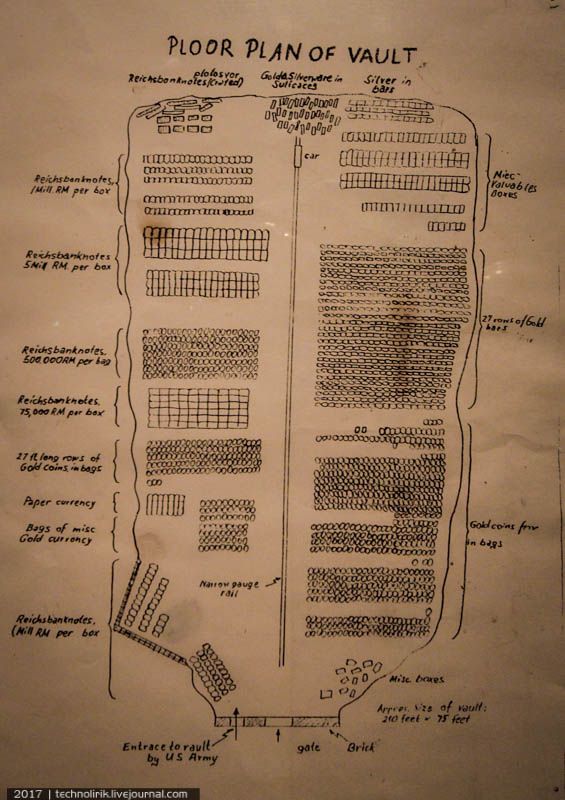 PLOOR PLAN OF VAULT
plotosvor
Reichsbanknotes(Crated)
Gold&Silverware in
Suticaces
Silver in
bars
car
Reichsbanknotes,
1Mill. RM per box
Misc
Valuables
Boxes
Reichsbanknotes
5Mill RM. per box
27 rows of Gold
bars
Reichsbanknotes.
500.000RM per bag
Reichsbanknotes.
75,000 RM per box
27 ft long rows of
Gold coins, in bags
Paper currency
Bags of misc
Gold currency
Gold coins
in bags
Narrow gauge
rail
Reichsbanknotes,
(Mill RM per box
Misc. boxes
Approx. Size of vault:
210 feet × 75 feet
Entrace to vault
by US Army
gate
Brick
2017 | technolirik.livejournal.com